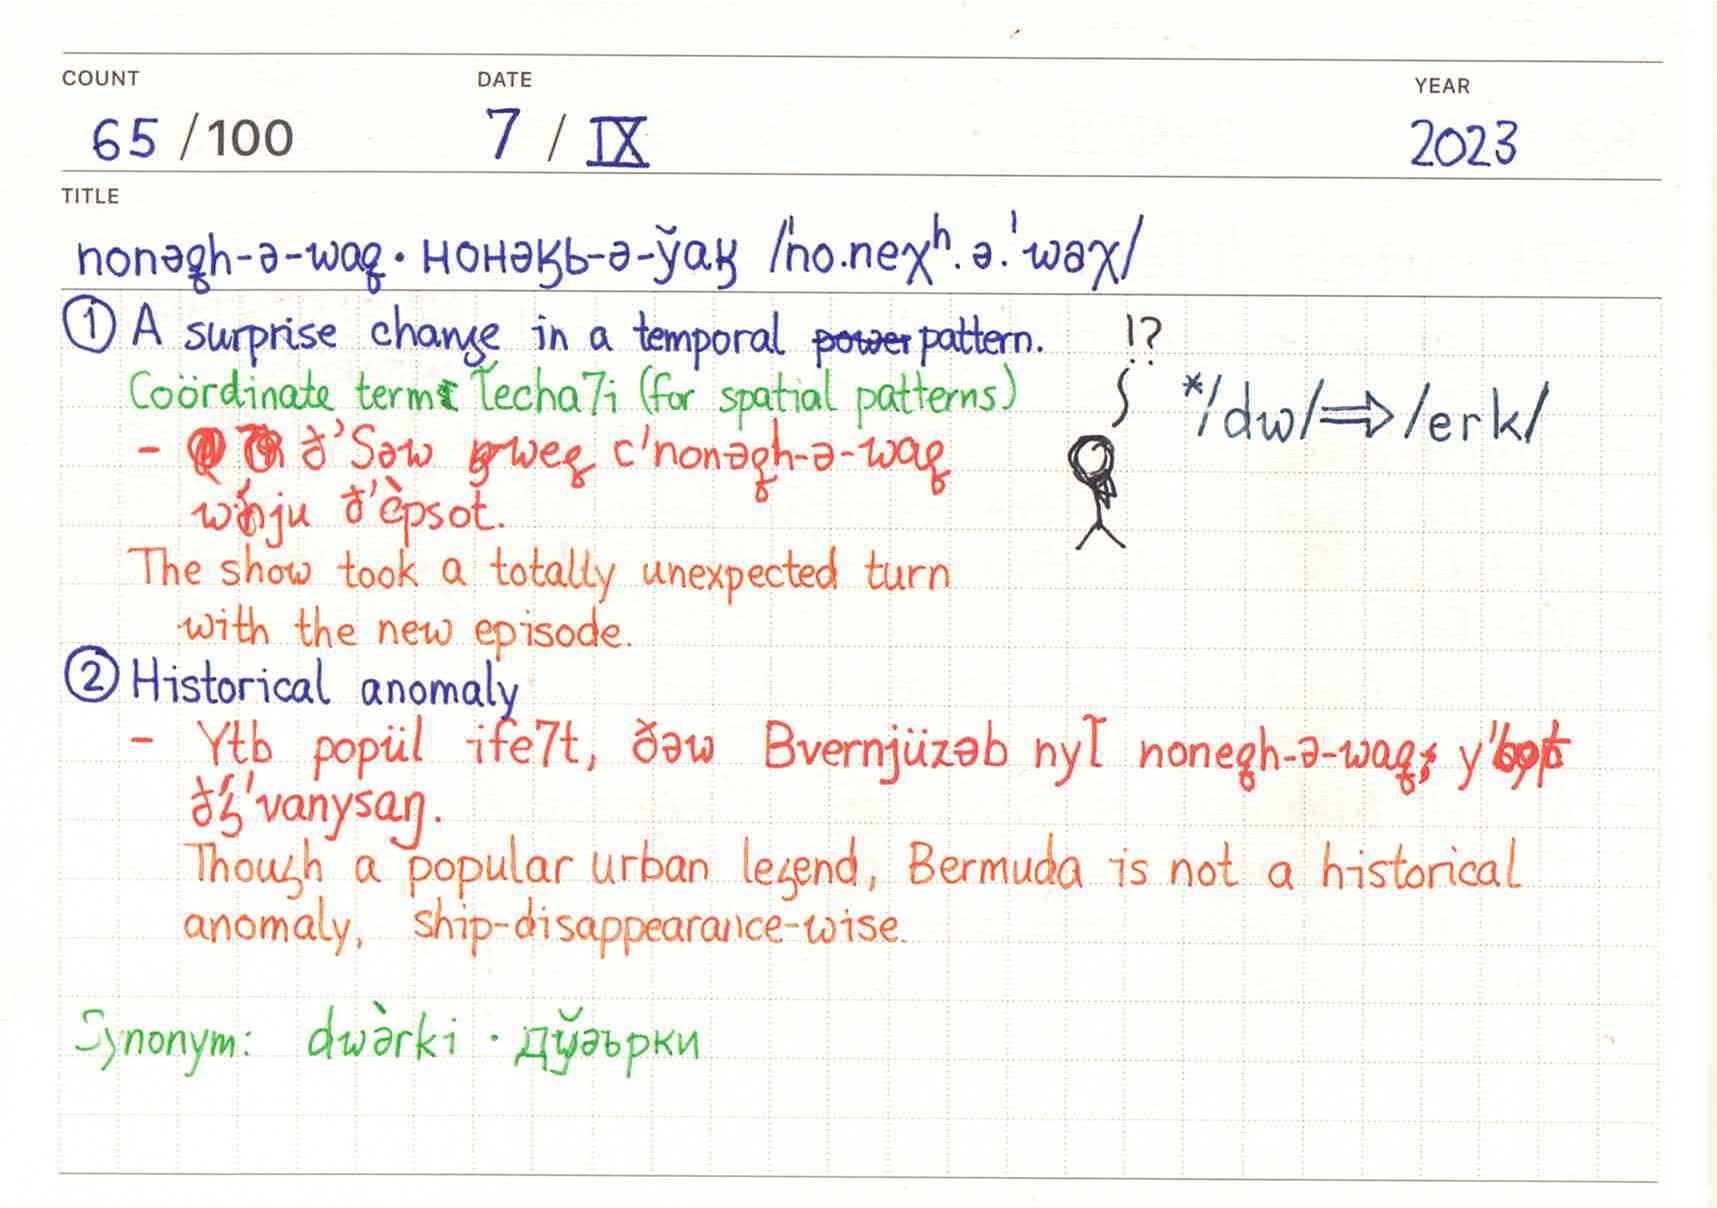 COUNT DATE YEAR
65 /100 7 / IX 2023
TITLE
nonəꝗh-ə-waꝗ · нонәӄь-ә-ўаӄ /ˈno.neχʰ.ə.ˈwəχ/
① A surprise change in a temporal power pattern.
!?
Coördinate term: (for spatial patterns)
*/dw/⇒/erk/
- ð'Səw weꝗ c'nonəꝗh-ə-waꝗ
ð'èpsot.
The show took a totally unexpected turn
with the new episode.
② Historical anomaly
- Ytb popül ife7t, ðəw Bvernjüzəb nyl̃ noneꝗh-ə-waꝗ,
Though a popular urban legend, Bermuda is not a historical
anomaly, ship-disappearance-wise.
Synonym: dwə̀rki · дўәърки